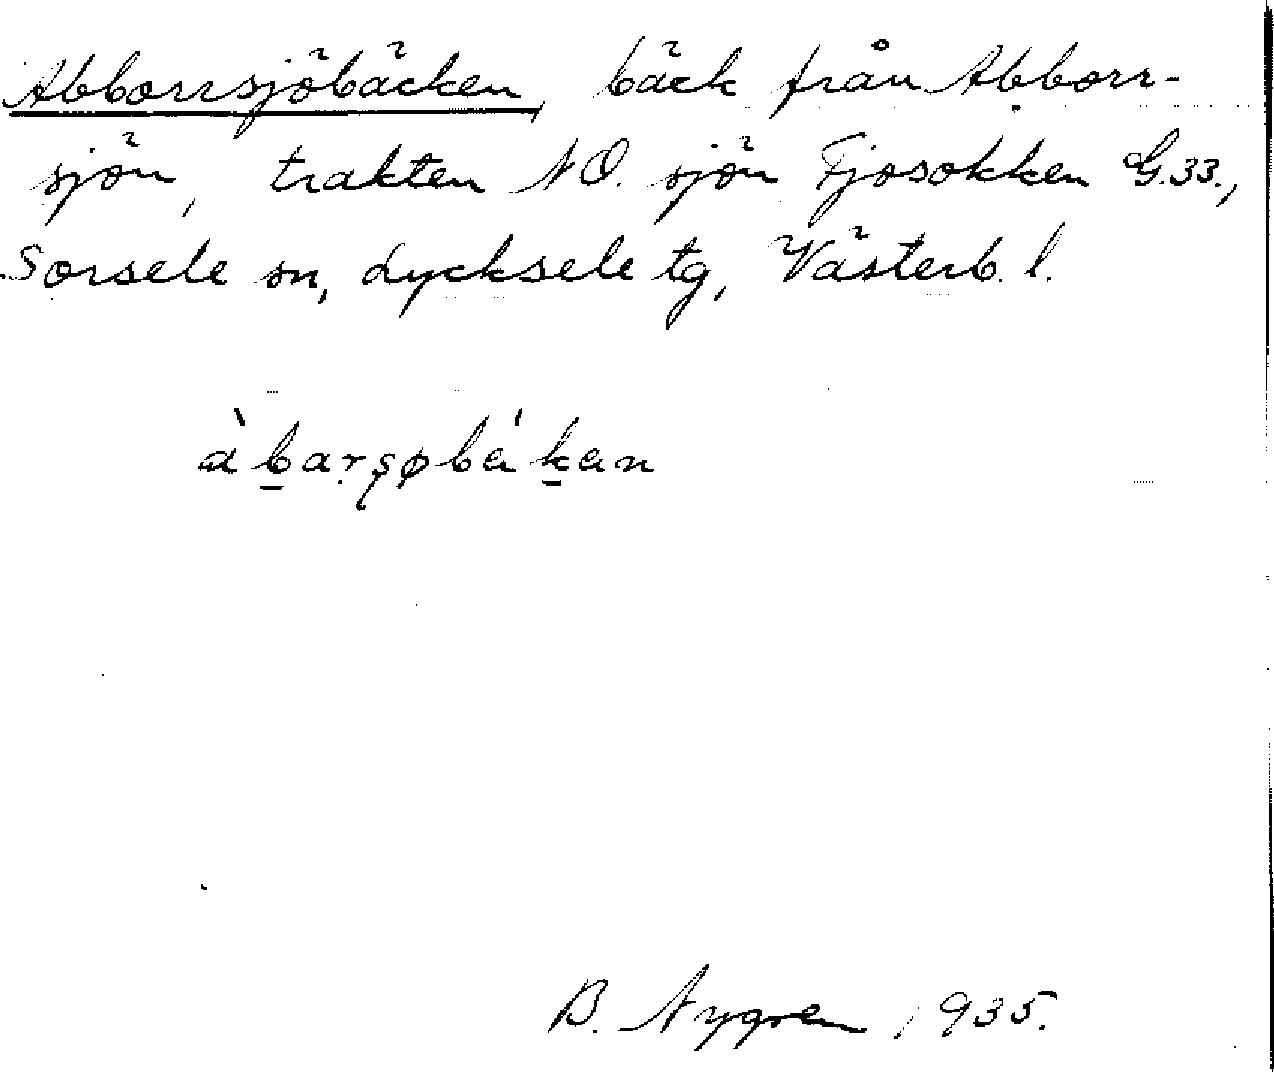 Abborrsjöbäcken, bäck från Abborr-
sjön, trakten NO. sjön Fjosokken G.33.,
Sorsele sn, Lycksele tg, Västerb. l.
B. Nygren 1935.